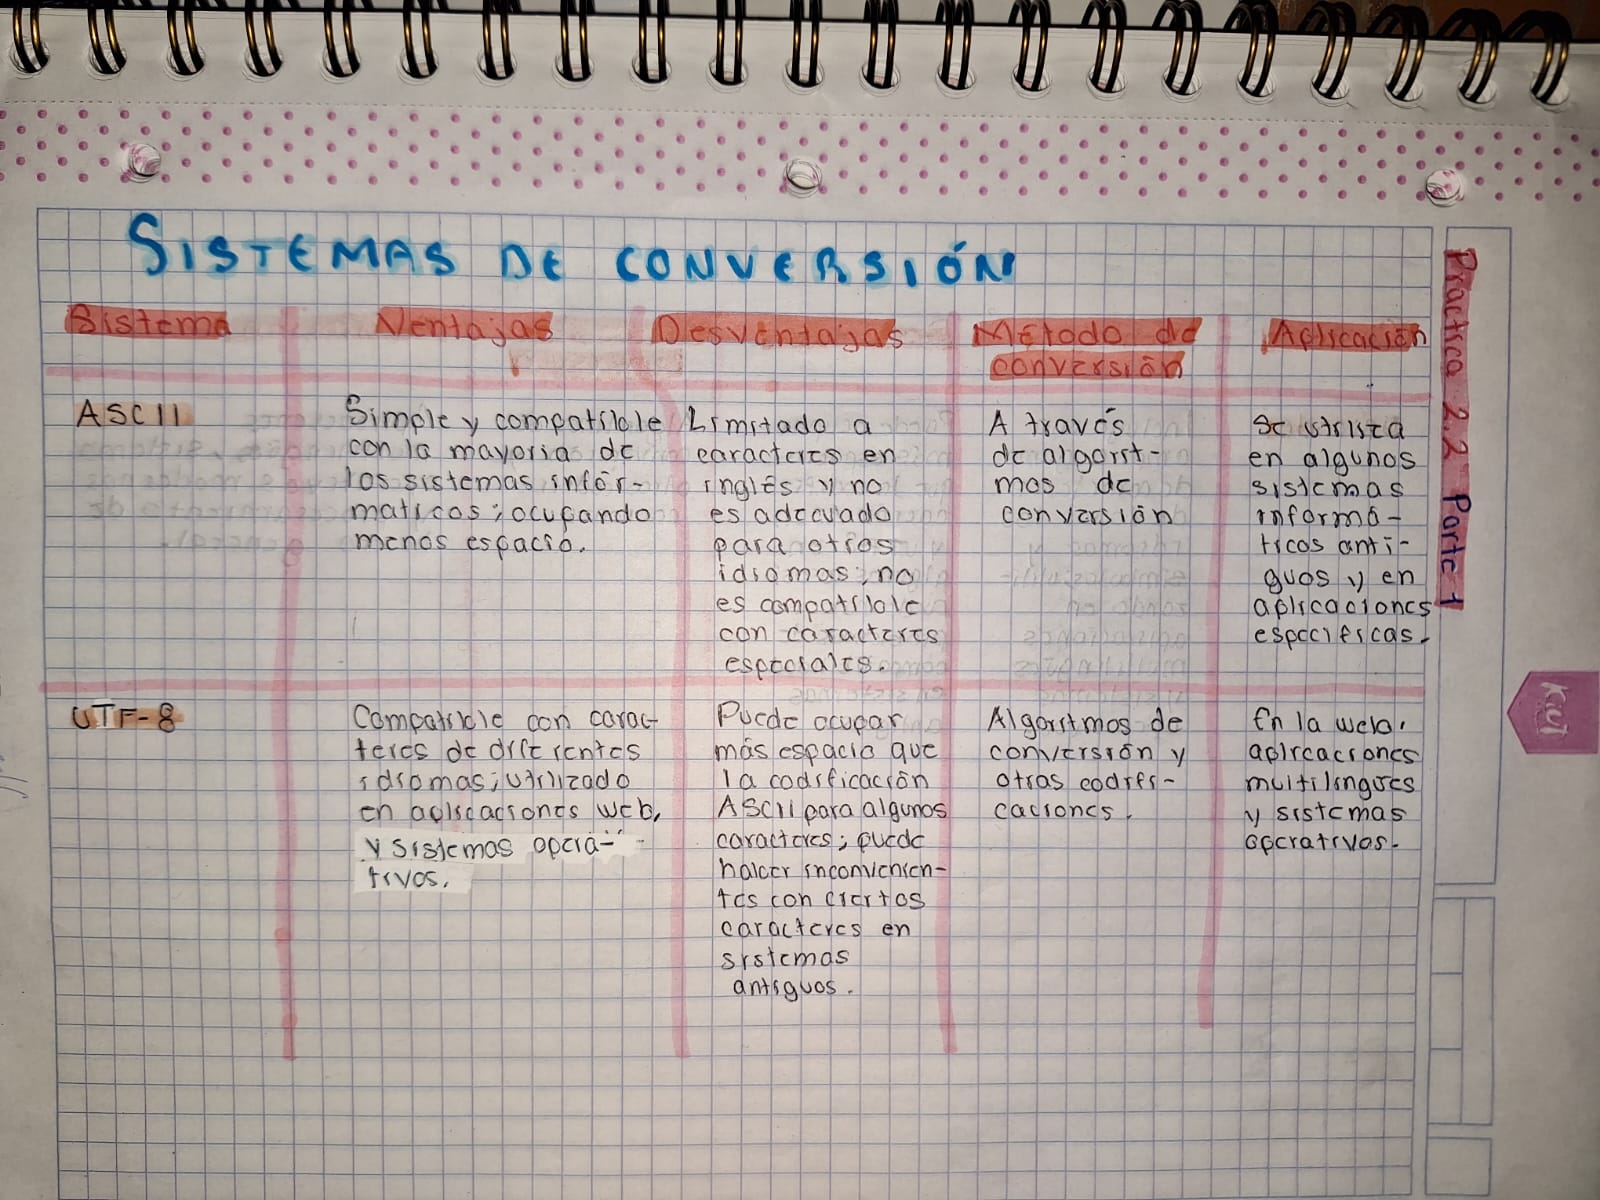 SISTEMAS DE CONVERSIÓN
Sistema
Ventajas
Desventajas
Método de
conversión
Aplicación
ASCII
Simple y compatible
con la mayoria de
los sistemas infór-
maticos; ocupando
menos espacio.
Limitado a
caracteres en
inglés y no
es adecuado
para otros
idiomas; no
es compatible
con caracteres
especiales.
A través
de algorit-
mos de
conversión
Se utiliza
en algunos
sistemas
informá-
ticos anti-
guos y en
aplicaciones
especificas.
UTF-8
Compatible con carac-
teres de diferentes
idiomas; utilizado
en aplicaciones web,
y sistemas opera-
tivos.
Puede ocupar
más espacio que
la codificación
ASCII para algunos
caracteres; puede
haber inconvenien-
tes con ciertos
caracteres en
sistemas
antiguos.
Algoritmos de
conversión y
otras codifi-
caciones.
En la web,
aplicaciones
multilingües
y sistemas
operativos.
Practica 2.2 Parte 1
Kiut